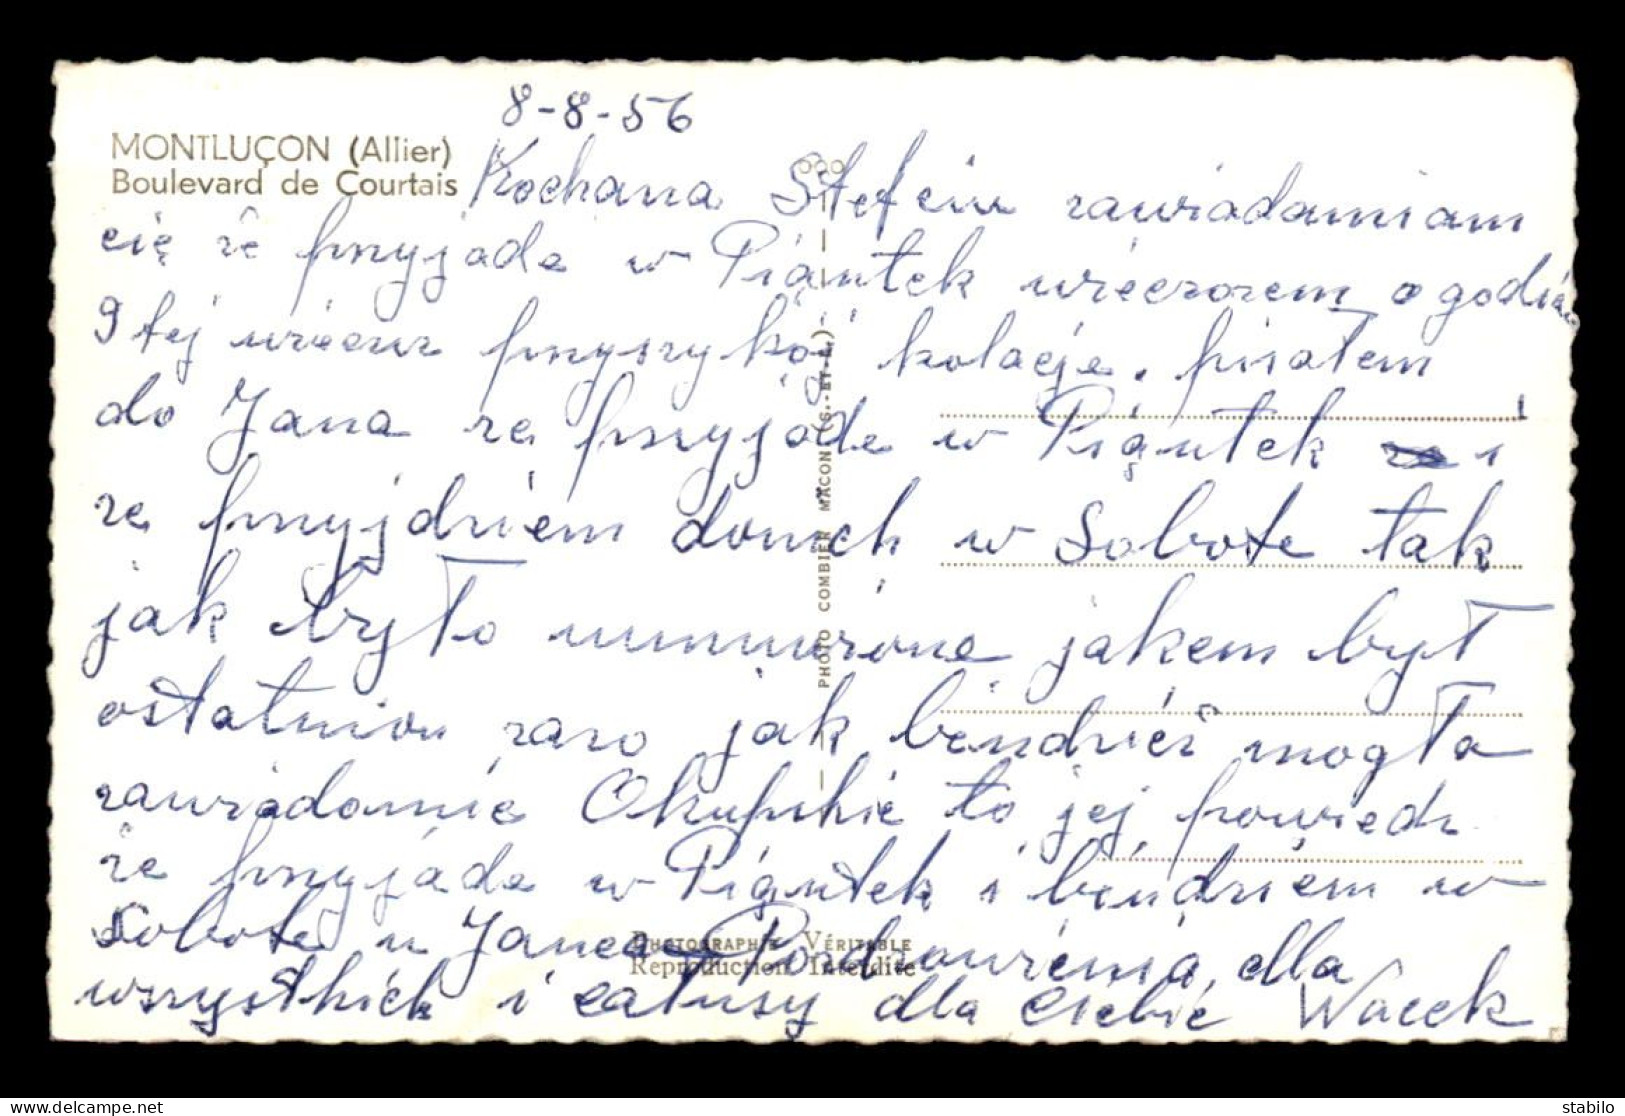 8-8-56
MONTLUÇON (Allier)
Boulevard de Courtais
Kochana Stefciu zawiadamiam
cię że przyjade w Piąntek wieczorem o godzin
9 tej wieczur przyszykój kolacje. pisałem
do Jana ze przyjade w Piąntek i
ze przyjdziem do nich w Sobote tak
jak było umuwione jakem był
ostatniou razo jak bendzieš mogła
zawiadomić to jej powiedz
że przyjade w Piąntek i bendziem w
Sobote u Janca Pozdrowienia dla
wszystkich i całusy dla Ciebie Wacek
PHOTO COMBIER MÂCON (S.-ET-L.)
PHOTOGRAPHIE VÉRITABLE
Reproduction Interdite
delcampe.net
stabilo